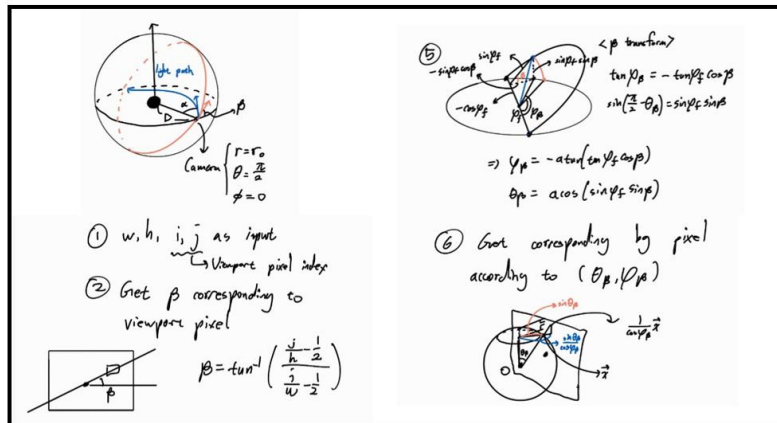 light path
α
β
D
Camera { r = r₀
θ = π/2
φ = 0
① w, h, i, j as input
↳ Viewport pixel index
② Get β corresponding to
viewport pixel
β
β = tan⁻¹ ( (j/h − 1/2) / (i/w − 1/2) )
⑤
<β transform>
sinφf
sinφf sinβ
−sinφf cosβ
−cosφf
φf
φβ
tanφβ = −tanφf cosβ
sin(π/2 − θβ) = sinφf sinβ
⇒ φβ = −atan(tanφf cosβ)
θβ = acos(sinφf sinβ)
⑥ Get corresponding bg pixel
according to (θβ, φβ)
sinθβ
1/cosφβ x⃗
sinθβ/cosφβ
θβ
x⃗